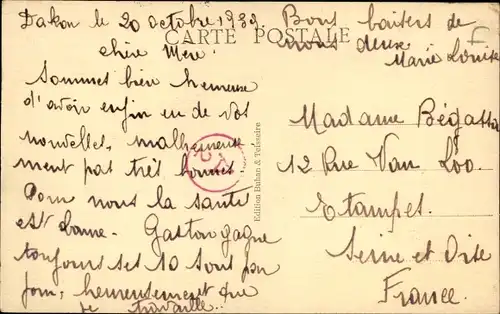 Dakar le 20 octobre 1939.
chère Mère.
CARTE POSTALE
Bons baisers de
nous deux
Marie Louise
Sommes bien heureuse
d'avoir enfin eu de vos
nouvelles, malheureuse
ment pas très bonnes
Pour nous la santé
est bonne. Gaston gagne
toujours ses 10 sous par
jour, heureusement que
je travaille.
Edition Buhan & Teisseire
Madame
12 Rue Van Loo.
Etampes.
Seine et Oise
France.